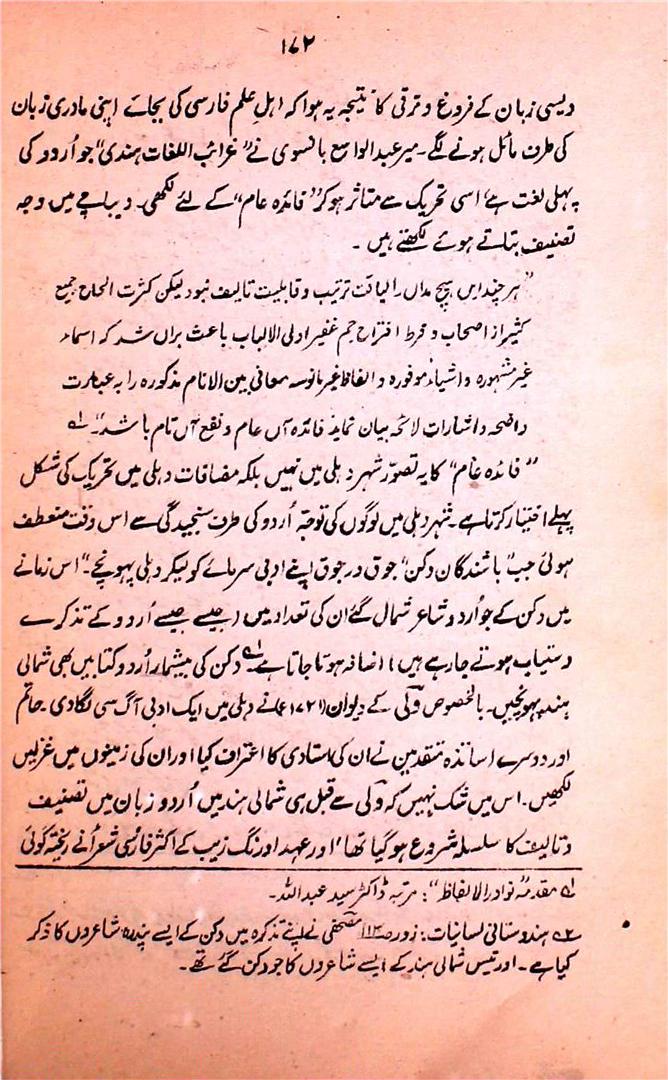 ۱۷۲
دیسی زبان کے فروغ و ترقی کا نتیجہ یہ ہوا کہ اہلِ علم فارسی کی بجائے اپنی مادری زبان
کی طرف مائل ہونے لگے۔ میر عبدالواسع ہانسوی نے "غرائب اللغات ہندی" جو اُردو کی
پہلی لغت ہے، اسی تحریک سے متاثر ہو کر "فائدہ عام" کے لئے لکھی۔ دیباچے میں وجہ
تصنیف بتاتے ہوئے لکھتے ہیں۔
"ہر چند ایں ہیچ مداں را لیاقت ترتیب و قابلیت تالیف نبود لیکن کثرت الحاح جمیع
کثیر از اصحاب و فرط اقتراح جم غفیر اولی الالباب باعث براں شد کہ اسماء
غیر مشہورہ و اشیاء موفورہ و الفاظ غیر مانوسہ معانی بین الانام مذکورہ را بہ عبارت
واضحہ و اشارات لائحہ بیان نماید فائدہ آں عام و نفع آں تام باشد"۔ ۱؎
"فائدہ عام" کا یہ تصوّر شہر دہلی میں نہیں بلکہ مضافات دہلی میں تحریک کی شکل
پہلے اختیار کرتا ہے۔ شہر دہلی میں لوگوں کی توجّہ اُردو کی طرف سنجیدگی سے اس وقت منعطف
ہوئی جب "باشندگان دکن" جوق در جوق اپنے ادبی سرمائے کو لیکر دہلی پہونچے۔" اس زمانے
میں دکن کے جو اُردو شاعر شمال گئے ان کی تعداد میں (جیسے جیسے اُردو کے تذکرے
دستیاب ہوتے جا رہے ہیں) اضافہ ہوتا جاتا ہے۔ ۲؎ دکن کی بیشمار اُردو کتابیں بھی شمالی
ہند پہونچیں۔ بالخصوص ولیؔ کے دیوان (۱۷۲۱ء) نے دہلی میں ایک ادبی آگ سی لگا دی۔ حاتم
اور دوسرے اساتذہ متقدمین نے ان کی استادی کا اعتراف کیا اور ان کی زمینوں میں غزلیں
لکھیں۔ اس میں شک نہیں کہ ولیؔ سے قبل ہی شمالی ہند میں اُردو زبان میں تصنیف
و تالیف کا سلسلہ شروع ہو گیا تھا، اور عہد اورنگ زیب کے اکثر فارسی شعرأ نے ریختہ گوئی
۱؎ مقدمہ "نوادر الالفاظ": مرتبہ ڈاکٹر سید عبداللہ۔
۲؎ ہندوستانی لسانیات: زور مصحفی نے اپنے تذکرہ میں دکن کے ایسے پندرہ شاعروں کا ذکر
کیا ہے۔ اور تیس شمالی ہند کے ایسے شاعروں کا جو دکن گئے تھے۔